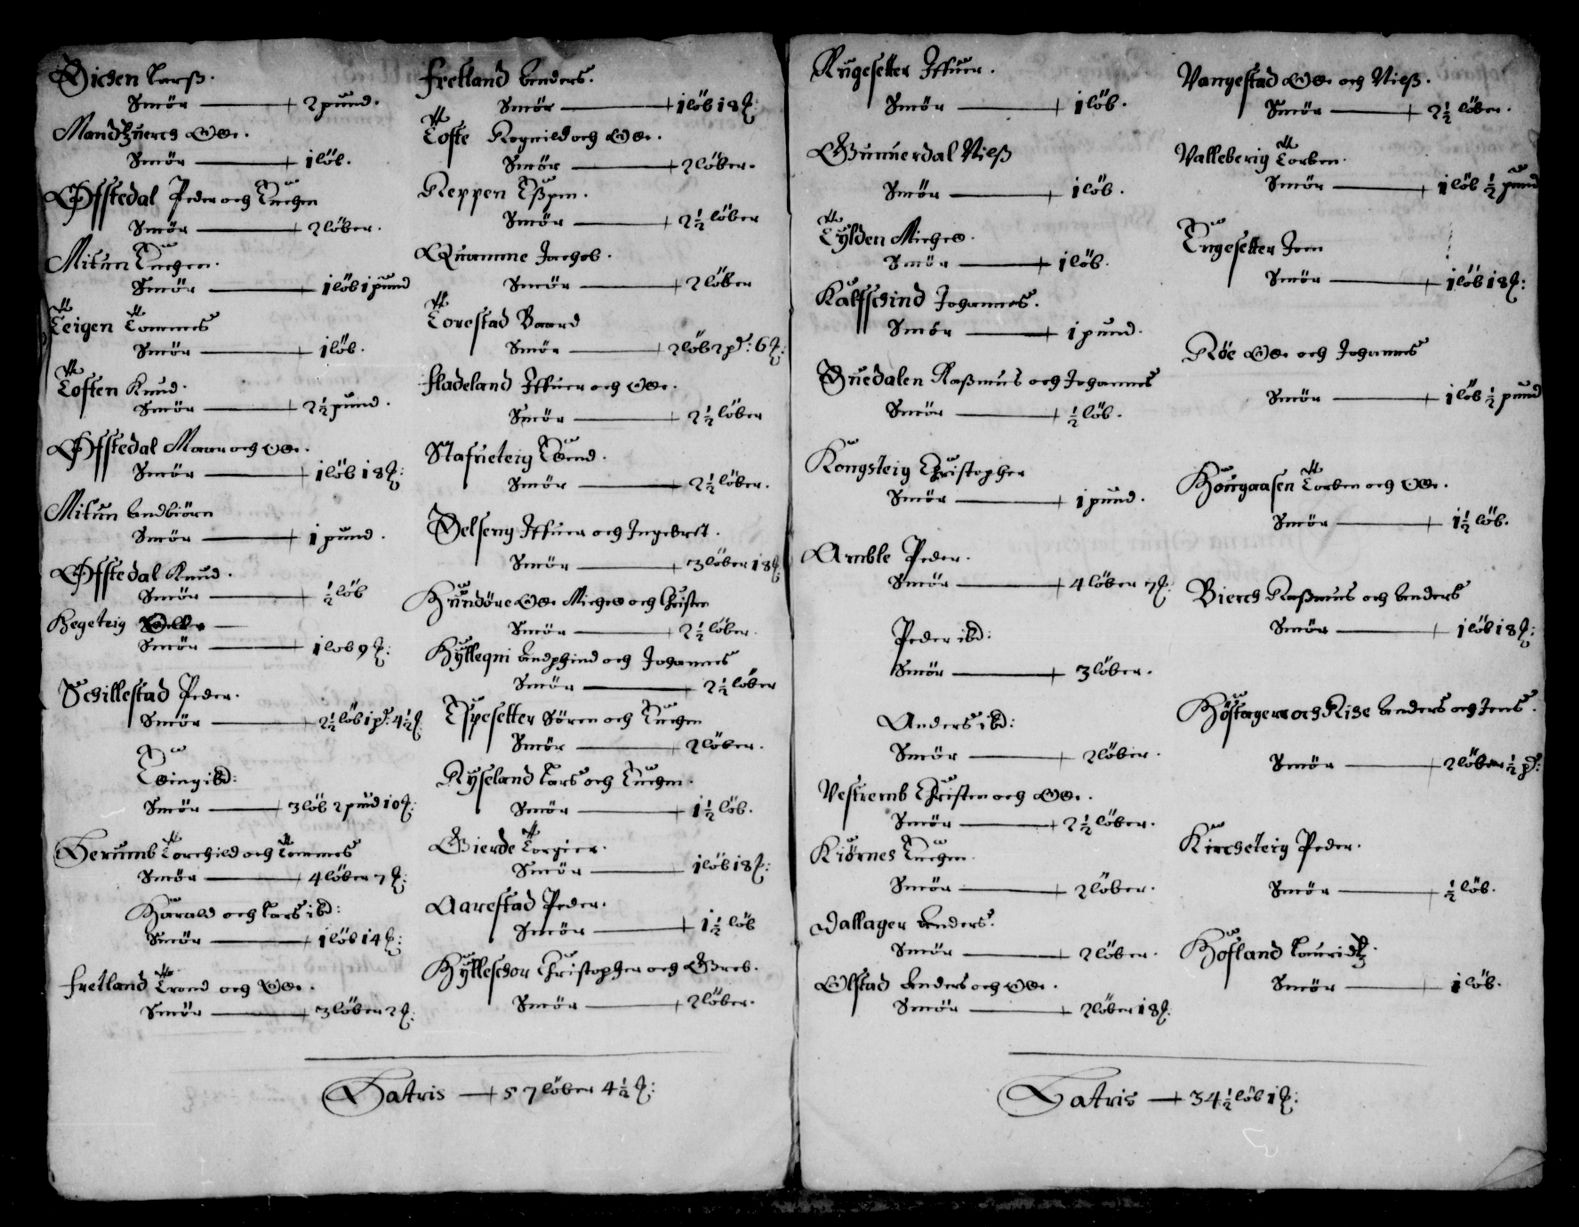 Dichen Larß.
Smör — 2 pund.
Mandzuerch Ole.
Smör — 1 löb.
Offstedal Peder och Tuchen
Smör — 2 löber.
Mitun Tuchen.
Smör — 1 löb 1 pund
Teigen Tommes
Smör — 1 löb.
Toften Knud.
Smör — 2½ pund.
Offstedal Mons och Ole.
Smör — 1 löb 18 ℔:
Mitun Endbiörn
Smör — 1 pund.
Offstedal Knud.
Smör — ½ löb
Hegeteig
Smör — 1 löb 9 ℔:
Schillestad Peder.
Smör — 2½ löb 1 pd: 4½ ℔
ibd:
Smör — 3 löb 2 pund 10 ℔:
Berums Torchild och Tommes
Smör — 4 löber 7 ℔:
Harald och Lars ibd:
Smör — 1 löb 14 ℔:
Fretland Trond och Ole.
Smör — 3 löber 2 ℔:
Fretland Anders.
Smör — 1 löb 18 ℔:
Tofte Rognild och Ole.
Smör — 2 löber.
Reppen Eßpen.
Smör — 2½ löber
Quamme Jachob.
Smör — 2 löber
Torestad Baard
Smör — 2 löb 2 pd: 6 ℔:
Fladeland Iffuer och Ole.
Smör — 2½ löber
Stafrieteig Elend.
Smör — 2½ löber.
Delseng Iffuer och Ingebret.
Smör — 3 löber 18 ℔
Hundöre Ole Michel och Christen
Smör — 2½ löber.
Hylleqni Endphind och Johannes
Smör — 2½ löber
Espesetter Sören och Tuchen
Smör — 2 löber.
Ryseland Lars och Tuchen.
Smör — 1½ löb.
Gierde Torgier.
Smör — 1 löb 18 ℔:
Aarestad Peder.
Smör — 1½ löb
Hylleschor Christopher och Greb.
Smör — 2 löber.
Satris — 57 löber 4½ ℔:
Rugesetter Iffuer.
Smör — 1 löb.
Gunnerdal Nilß
Smör — 1 löb.
Tylden Michel.
Smör — 1 löb.
Kalfschind Johannes.
Smör — 1 pund.
Duedalen Raßmus och Johannes
Smör — ½ löb.
Kongsteig Christopher
Smör — 1 pund.
Amble Peder.
Smör — 4 löber 7 ℔:
Peder ibd:
Smör — 3 löber.
Anders ibd:
Smör — 2 löber.
Vestremb Christen och Ole.
Smör — 2½ löber.
Kiörnes Tuchen.
Smör — 2 löber.
Dallager Anders.
Smör — 2 löber.
Olstad Anders och Ole.
Smör — 2 löber 18 ℔:
Vangestad Ole och Nilß.
Smör — 2½ löber.
Valleberig Torben.
Smör — 1 löb ½ pund
Engesetter Jon
Smör — 1 löb 18 ℔:
Röe Ole och Johannes
Smör — 1 löb ½ pund
Hougaasen Torben och Ole.
Smör — 1½ löb.
Bierch Raßmus och Anders
Smör — 1 löb 18 ℔:
Höstager och Rise Anders och Jens.
Smör — 2 löber ½ pd:
Kircheteig Peder.
Smör — ½ löb.
Hofland Lauridtz.
Smör — 1 löb.
Satris — 34½ löb 1 ℔: